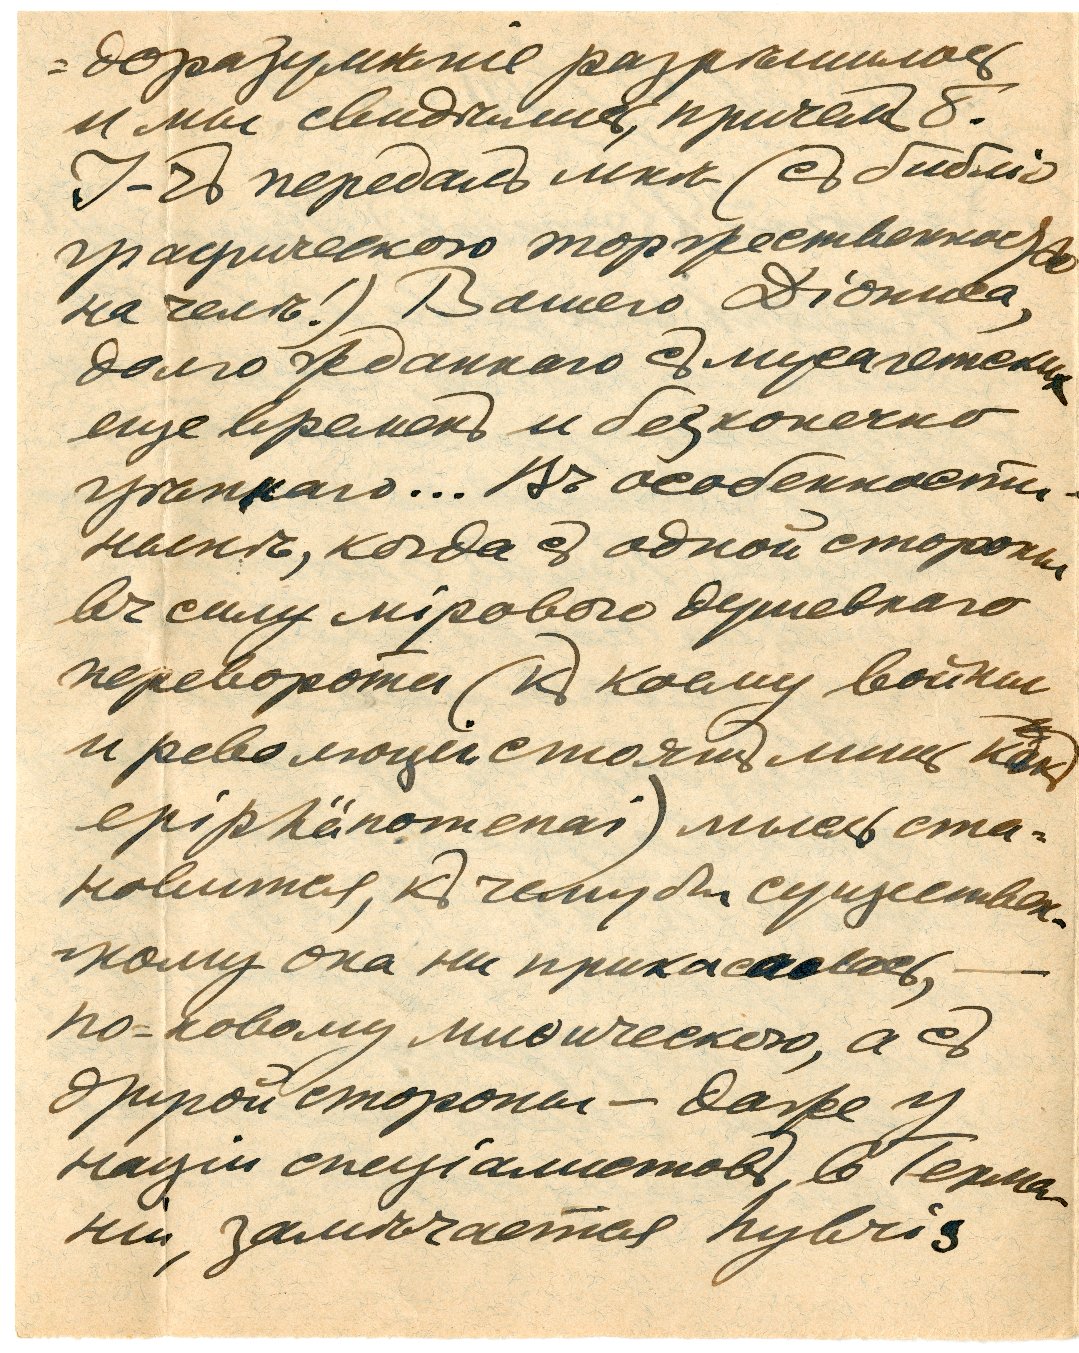 =доразумѣніе разрѣшилось
и мы свидѣлись, причемъ б.
І-чъ передалъ мнѣ (съ библіо
графическою торжественностью
на челѣ!) Вашего Діониса,
долго жданнаго съ мусагетских
еще временъ и безконечно
цѣннаго... Въ особенности-
нынѣ, когда съ одной стороны
въ силу мірового душевнаго
переворота (къ коему войны
и революціи стоятъ лишь какъ
epiphänomenai) мысль ста=
новится, къ чему бы существен-
=ному она ни прикасалась, —
по=новому миѳическою, а съ
другой стороны — даже у
націи спеціалистовъ, въ Герма-
ніи, замѣчается hybris